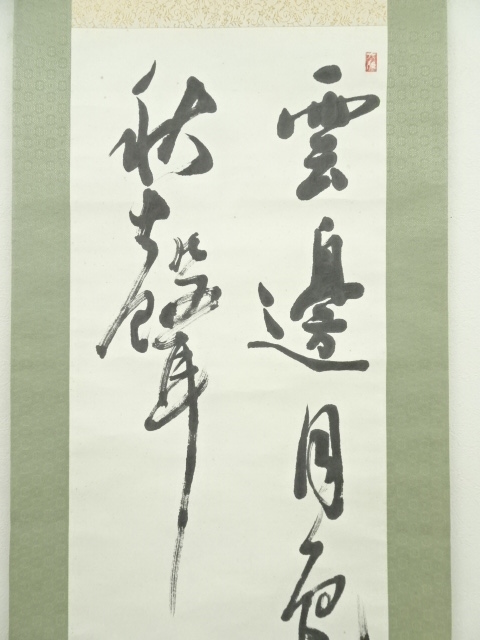 雲邊月
秋聲